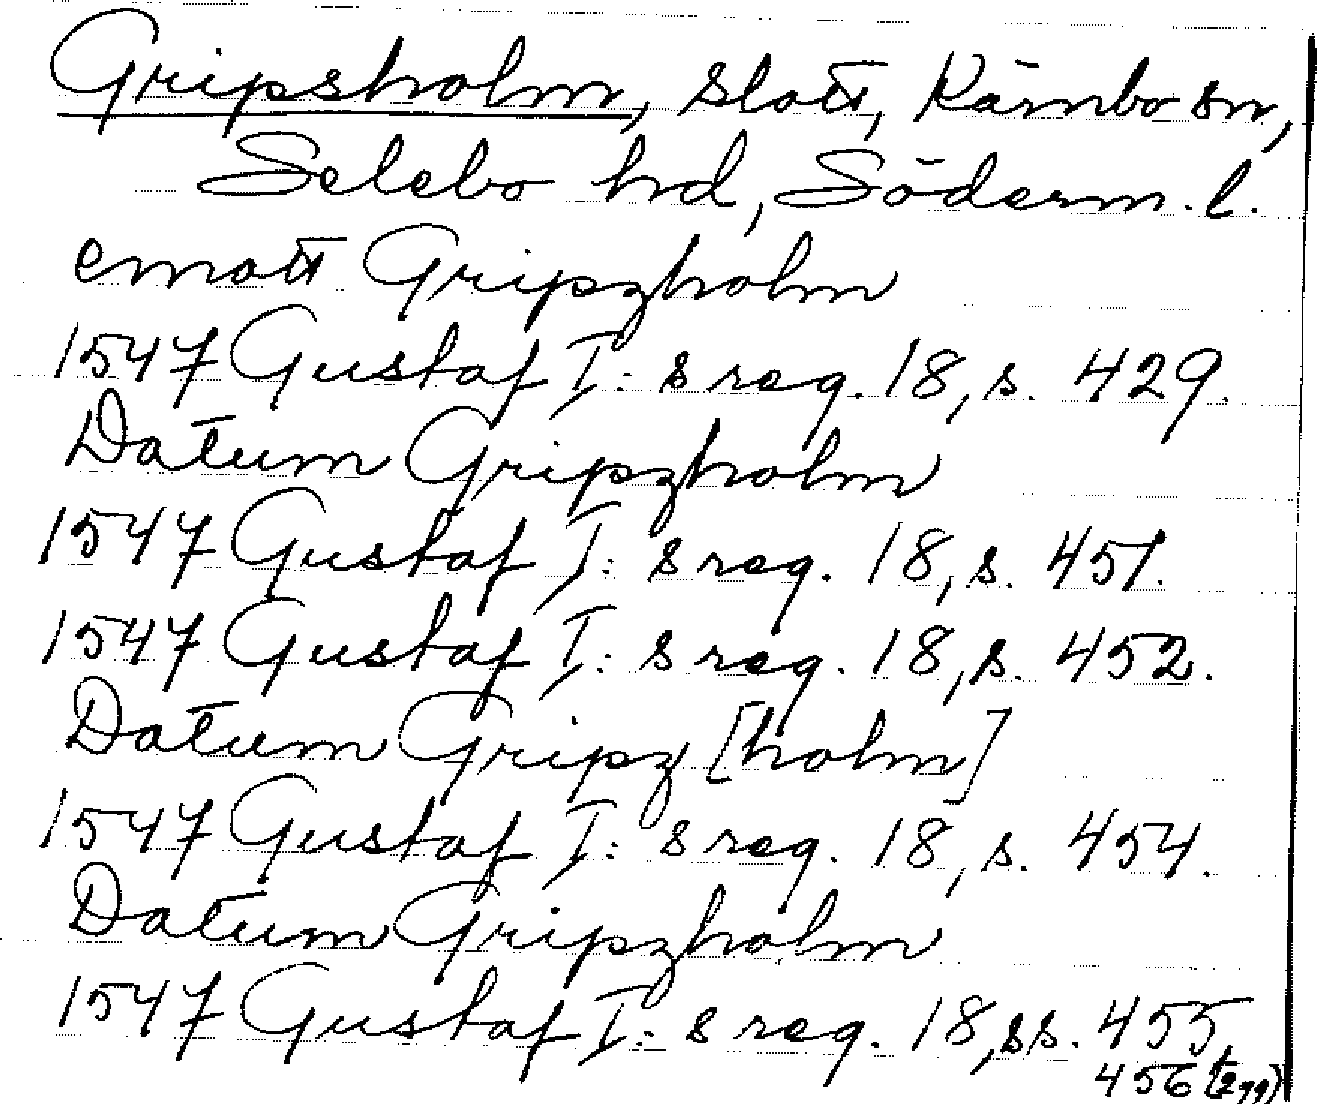 Gripsholm, slott, Kärnbo sn,
Selebo hd, Söderm. l.
emott Gripzholm
1547 Gustaf I: s reg. 18, s. 429.
Datum Gripzholm
1547 Gustaf I: s reg. 18, s. 451.
1547 Gustaf I: s reg. 18, s. 452.
Datum Gripz [holm]
1547 Gustaf I: s reg. 18, s. 454.
Datum Gripzholm
1547 Gustaf I: s reg. 18, ss. 455,
456 (2 gg)